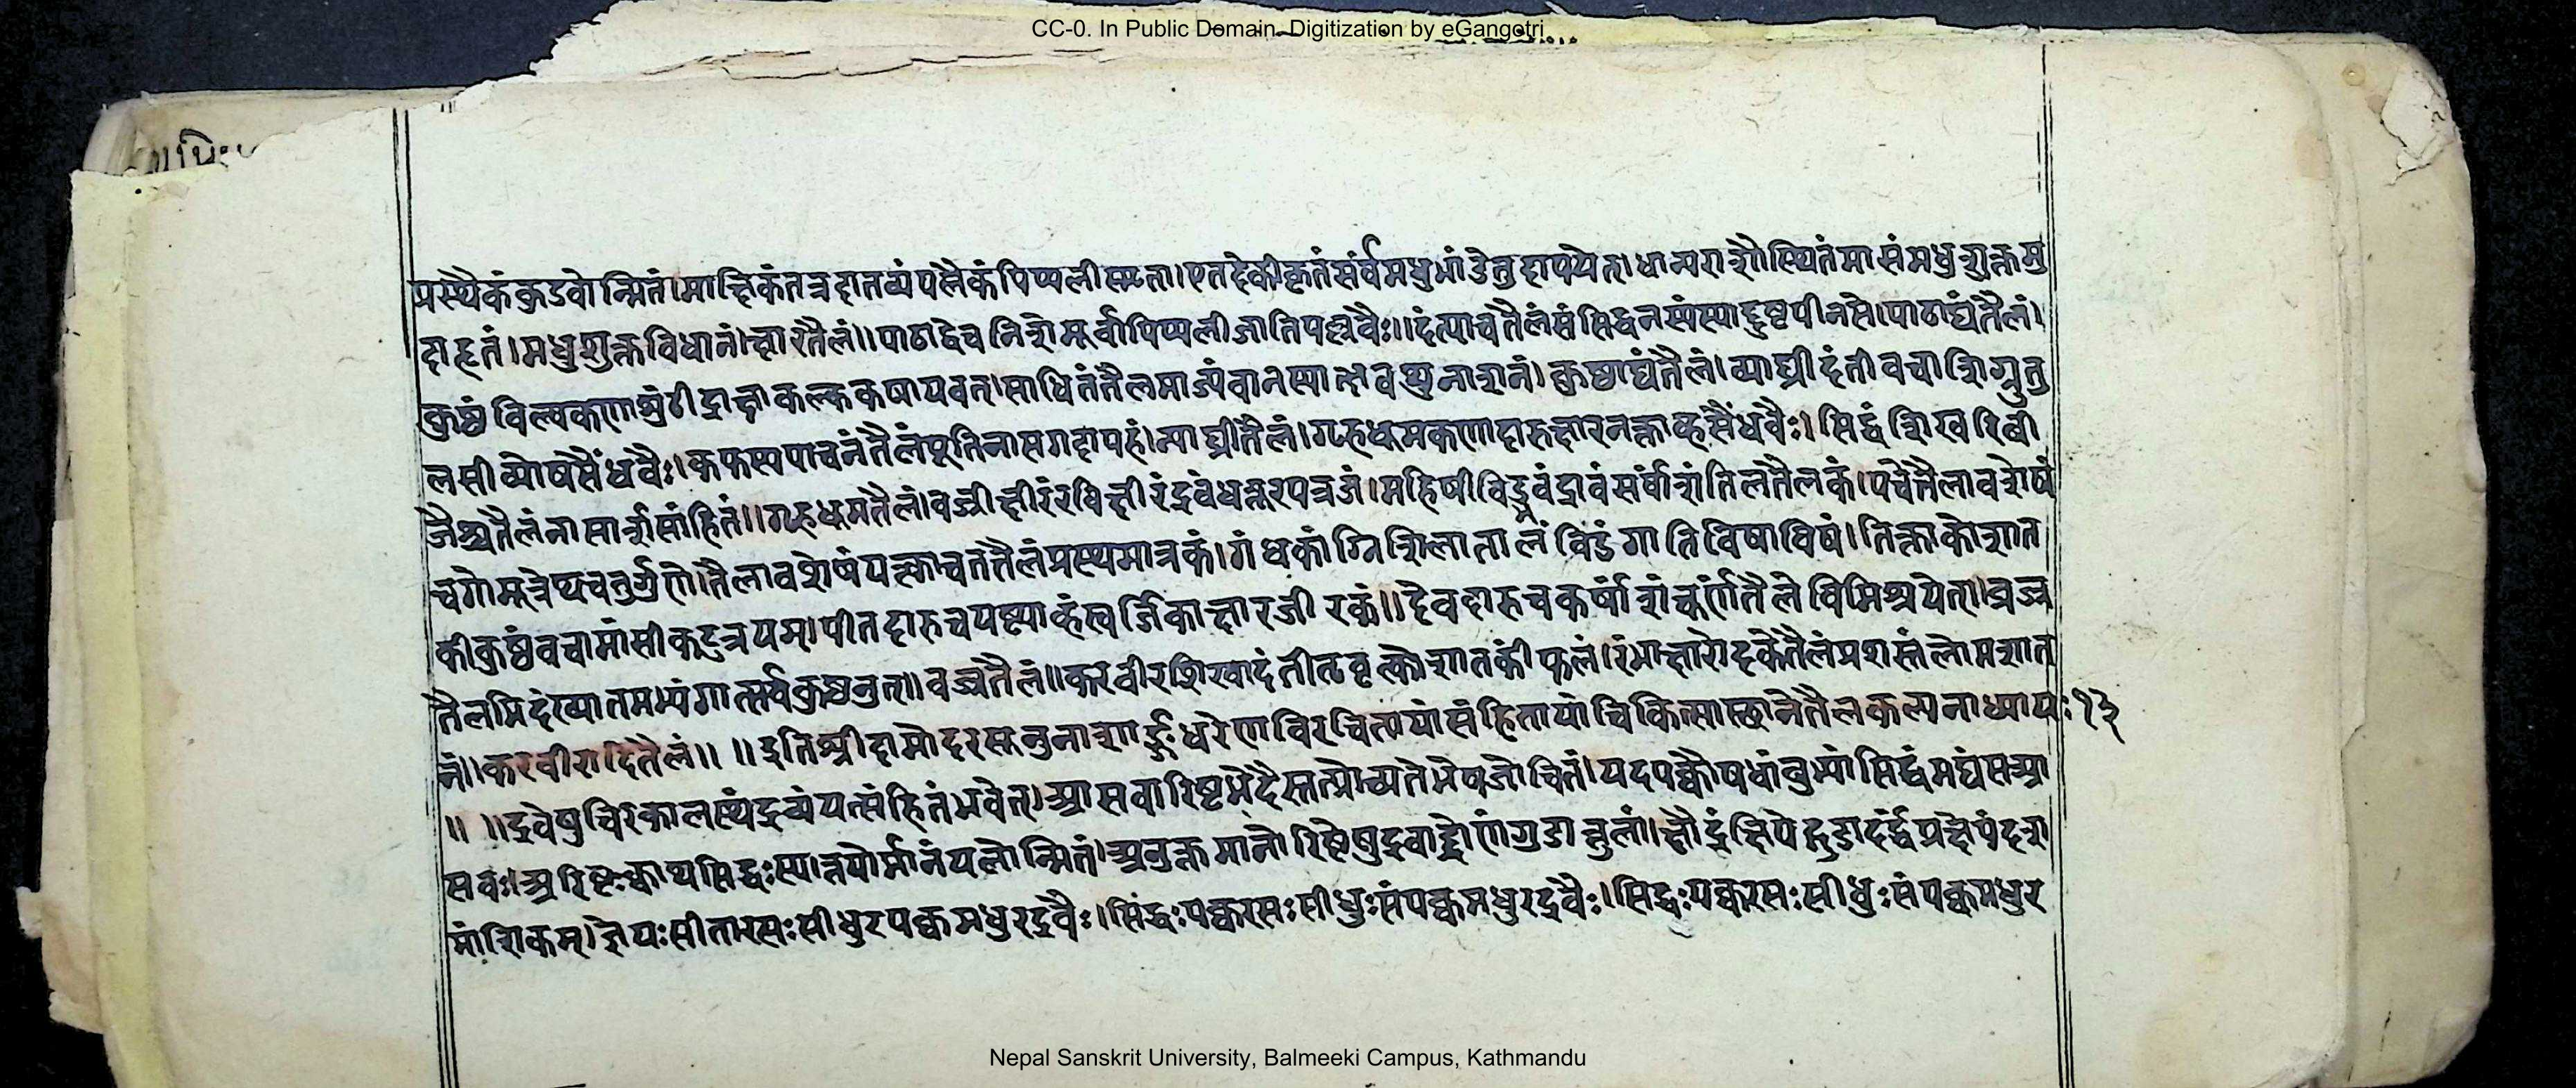 CC-0. In Public Domain. Digitization by eGangotri
प्रस्थैकं कुडवोन्मितं।माक्षिकं तत्र दातव्यं पलैकं पिप्पली स्मृता।एतदेकीकृतं सर्वं मधुभांडे तु दापयेत्।धान्यराशौ स्थितं मासं मधुशुक्तमु
दाहृतं।मधुशुक्तविधानं।क्षारतैलं॥पाठाद्वे च निशे मूर्वापिप्पलीजातिपल्लवैः॥दंत्या च तैलं संसिद्धं नस्यं स्याद्दुष्टपीनसे।पाठाद्यं तैलं।
कुष्ठं बिल्वकणाशुंठीद्राक्षाकल्ककषायवत्।साधितं तैलमाज्यं वा नस्यात्क्षवथुनाशनं।कुष्ठाद्यं तैलं।व्याघ्रीदंतीवचाशिग्रुतु
लसीव्योषसैंधवैः।कफस्य पाचनं तैलं पूतिनासगदापहं।व्याघ्रीतैलं।गृहधूमकणादारुक्षारनक्ताव्हसैंधवैः।सिद्धं शिखरिबी
जैश्च तैलं नासार्शसां हितं॥गृहधूमतैलं।वज्रीक्षीरं रविक्षीरं द्रवं धत्तूरपत्रजं।महिषीविड्भवं द्रावं सर्वांशं तिलतैलकं।पचेत्तैलावशेषं
च गोमूत्रेप्यचतुर्गुणे।तैलावशेषं पक्त्वा च तत्तैलं प्रस्थमात्रकं।गंधकाग्निशिलातालं विडंगातिविषाविषं।तिक्ताकोशात
कीकुष्ठं वचामांसीकटुत्रयम्।पीतदारु च यष्ट्याव्हं स्वर्जिकाक्षारजीरकं॥देवदारु च कर्षांशं चूर्णं तैले विमिश्रयेत्।वज्र
तैलमिदं ख्यातमभ्यंगात्सर्वकुष्ठनुत्॥वज्रतैलं॥करवीरशिखादंतीतृवृत्कोशातकीफलं।रंभाक्षारोदके तैलं प्रशस्तं लोमशात
नं॥करवीरादितैलं॥ ॥इति श्रीदामोदरसूनुना शार्ङ्गधरेण विरचितायां संहितायां चिकित्सास्थाने तैलकल्पनाध्यायः१३
॥ ॥द्रवेषु चिरकालस्थं द्रव्यं यत्संहितं भवेत्।आसवारिष्टभेदैस्तत्प्रोच्यते भेषजोचितं।यदपक्वौषधांबुभ्यां सिद्धं मद्यं स आ
सवः।अरिष्टःक्वाथसिद्धःस्यात्तयोर्मानं पलोन्मितं।अनुक्तमानोरिष्टेषु द्रवाद्द्रोणं गुडात्तुलां।क्षौद्रं क्षिपेद्गुडादर्द्धं प्रक्षेपं दशा
मांशिकम्।ज्ञेयःसीतारसःसीधुरपक्वमधुरद्रवैः।सिद्धःपक्वरसःसीधुःसंपक्वमधुरद्रवैः।सिद्धःपक्वरसःसीधुःसंपक्वमधुर
Nepal Sanskrit University, Balmeeki Campus, Kathmandu